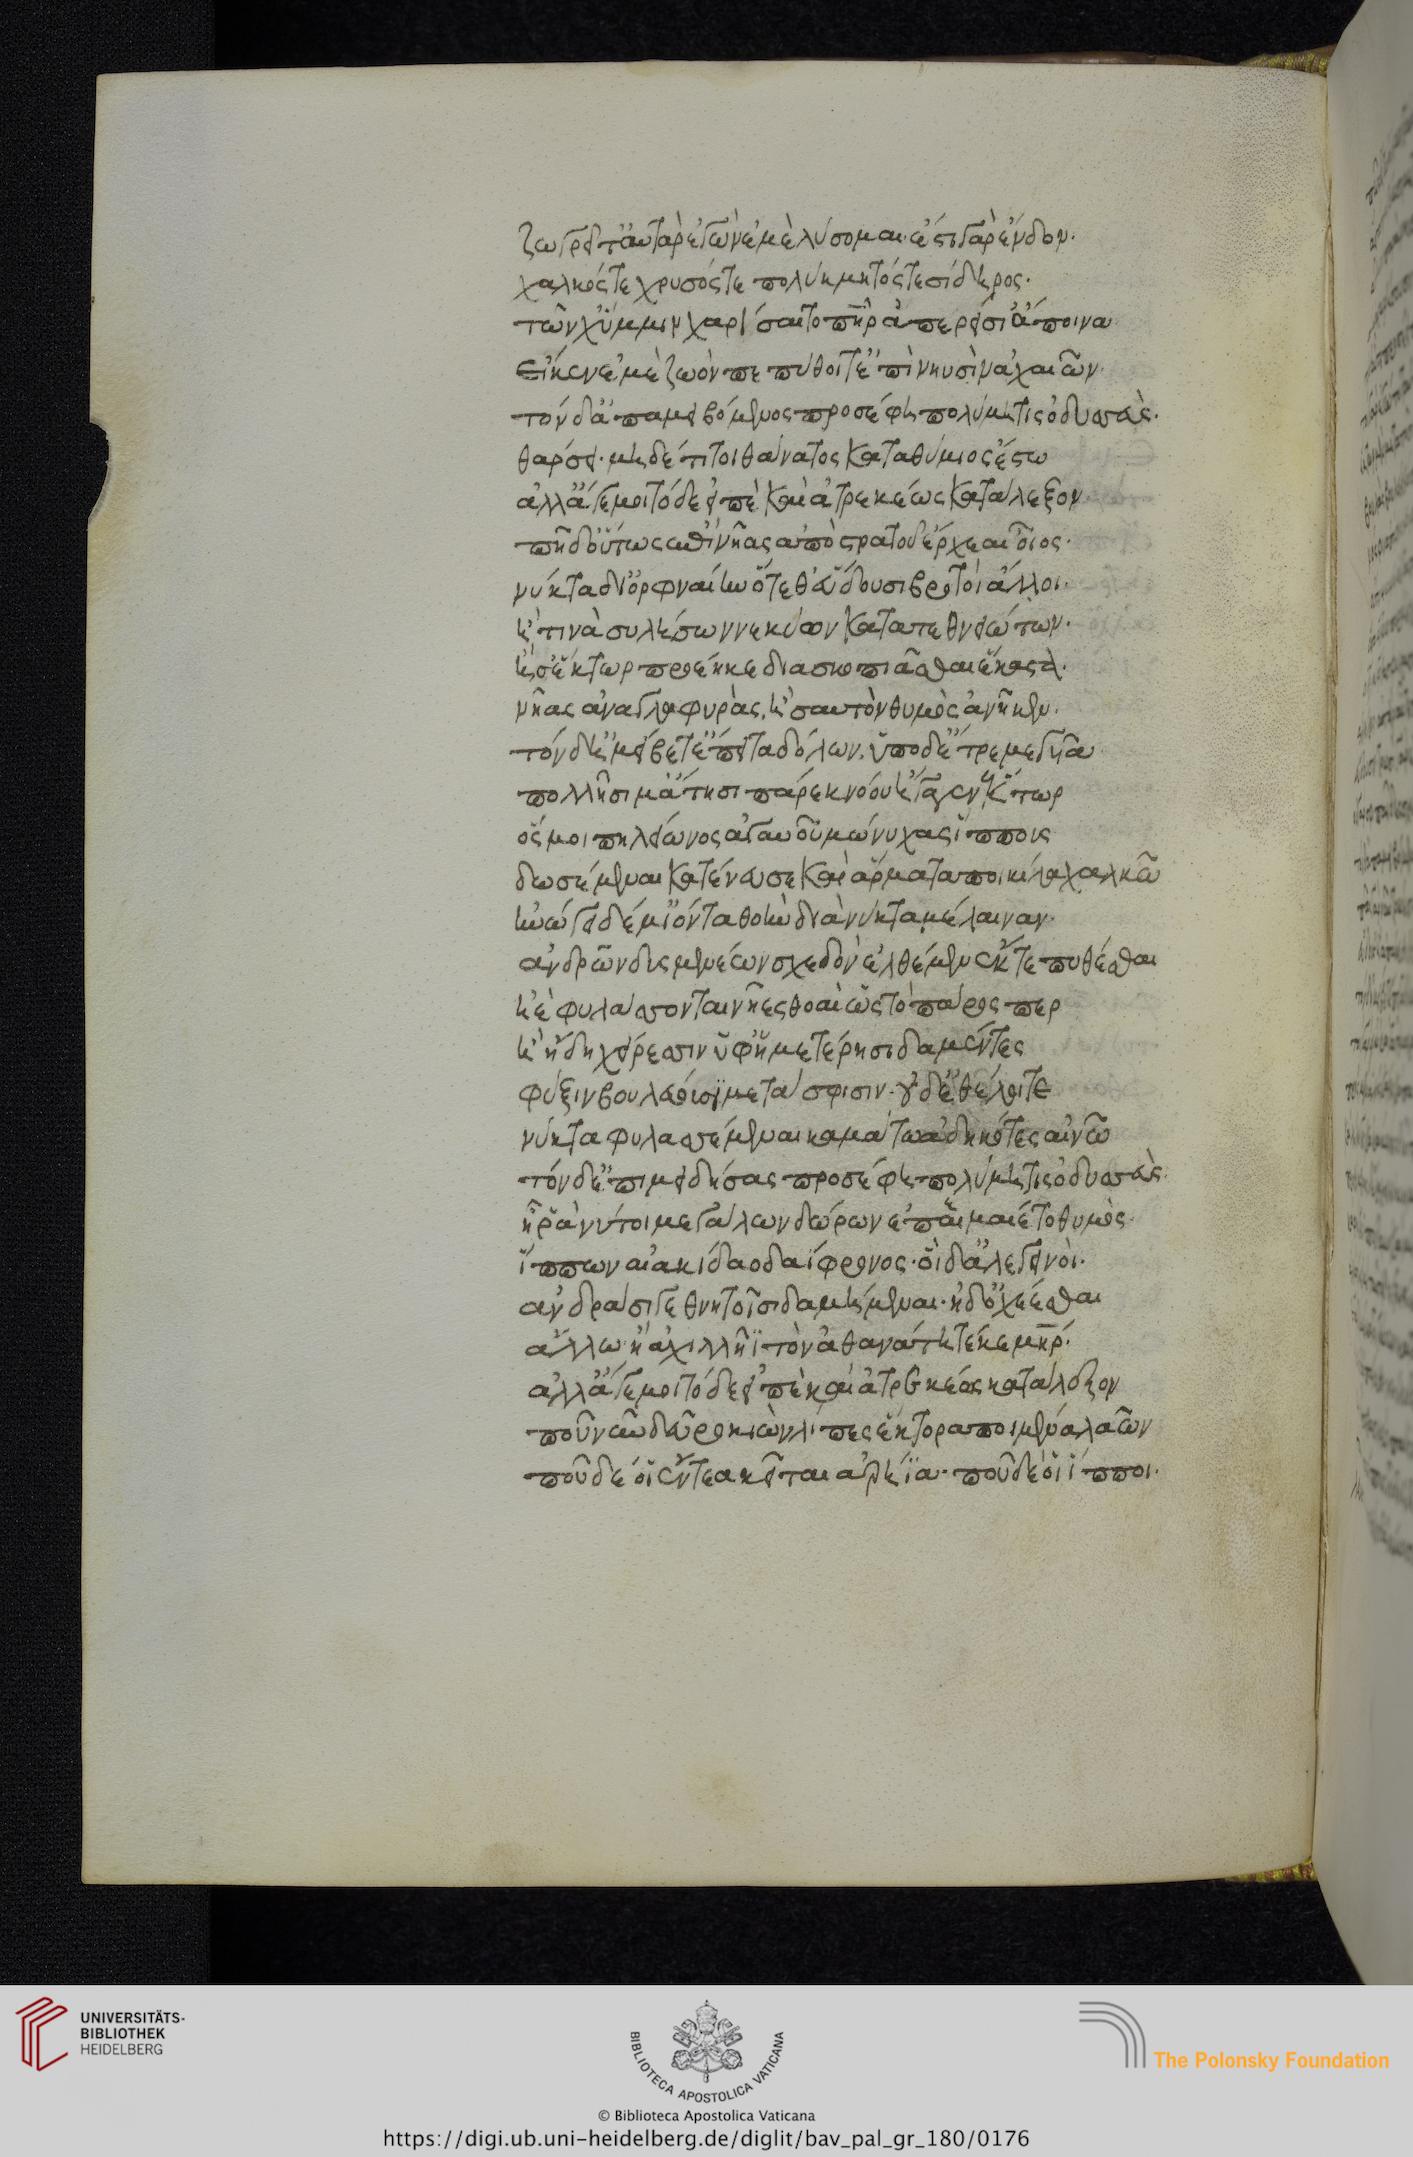 ζωγρεῖτ' αὐτὰρ ἐγὼν ἐμὲ λύσομαι· ἐστι γὰρ ἔνδον·
χαλκός τε χρυσός τε πολύκμητός τε σίδηρος·
τῶν χ' ὔμμιν χαρίσαιτο πὴρ ἀπερείσι' ἄποινα
εἴ κεν ἐμὲ ζωὸν πεπύθοιτ' ἐπὶ νηυσὶν ἀχαιῶν·
τόν δ' ἀπαμειβόμενος προσέφη πολύμητις ὀδυσσεύς·
θάρσει· μηδέ τι τοι θάνατος καταθύμιος ἔστω
ἀλλ' ἄγε μοι τόδε εἰπὲ καὶ ἀτρεκέως κατάλεξον
πῆ δ' οὕτως ἐπὶ νῆας ἀπὸ στρατοῦ ἔρχεαι οἶος·
νύκτα δι' ὀρφναίην ὅτε θ' εὕδουσι βροτοὶ ἄλλοι·
ἤ τινα συλήσων νεκύων κατατεθνειώτων·
ἤ σ' ἕκτωρ προέηκε διασκοπιᾶσθαι ἕκαστα·
νῆας ἀνα γλαφυράς, ἤ σ' αυτὸν θυμὸς ἀνῆκεν·
τόν δ' ἠμείβετ' ἔπειτα δόλων, ὑπο δ' ἔτρεμε γυῖα
πολλῆσι μ' ἄτησι πάρεκ νόου ἤγαγεν ἕκτωρ
ὅς μοι πηλείωνος ἀγαυοῦ μώνυχας ἵππους
δωσέμεναι κατένευσε καὶ ἅρματα ποικίλα χαλκῶ
ἠνώγει δέ μ' ἰόντα θοὴν διὰ νύκτα μέλαιναν·
ἀνδρῶν δυσμενέων σχεδὸν ἐλθέμεν ἔκ τε πυθέσθαι
ἠὲ φυλάσσονται νῆες θοαὶ ὡς τὸ πάρος περ
ἢ ἤδη χείρεσσιν ὑφ' ἡμετέρησι δαμέντες
φύξιν βουλεύοιϊ μετά σφισιν· οὐδ' ἐθέλοιτε
νύκτα φυλασσέμεναι καμάτω ἀδηκότες αἰνῶ
τόν δ' ἐπιμειδήσας προσέφη πολύμητις ὀδυσσεύς·
ἦ ῥά νύ τοι μεγάλων δώρων ἐπεμαίετο θυμὸς·
ἵππων αἰακίδαο δαΐφρονος· οἱ δ' ἀλεγεινοὶ·
ἀνδράσι γε θνητοῖσι δαμήμεναι· ἠδ' ὀχέεσθαι
ἄλλω· ἢ ἀχιλλῆϊ τὸν ἀθανάτη τέκε μήρ·
ἀλλ' ἄγε μοι τόδε εἰπὲ καὶ ἀτρεκέως κατάλεξον
ποῦ νῦν δεῦρο κιὼν λίπες ἕκτορα ποιμένα λαῶν
ποῦ δέ οἱ ἔντεα κεῖται ἀρήϊα· ποῦ δέ οἱ ἵπποι·
UNIVERSITÄTS-
BIBLIOTHEK
HEIDELBERG
BIBLIOTECA APOSTOLICA VATICANA
The Polonsky Foundation
© Biblioteca Apostolica Vaticana
https://digi.ub.uni-heidelberg.de/diglit/bav_pal_gr_180/0176